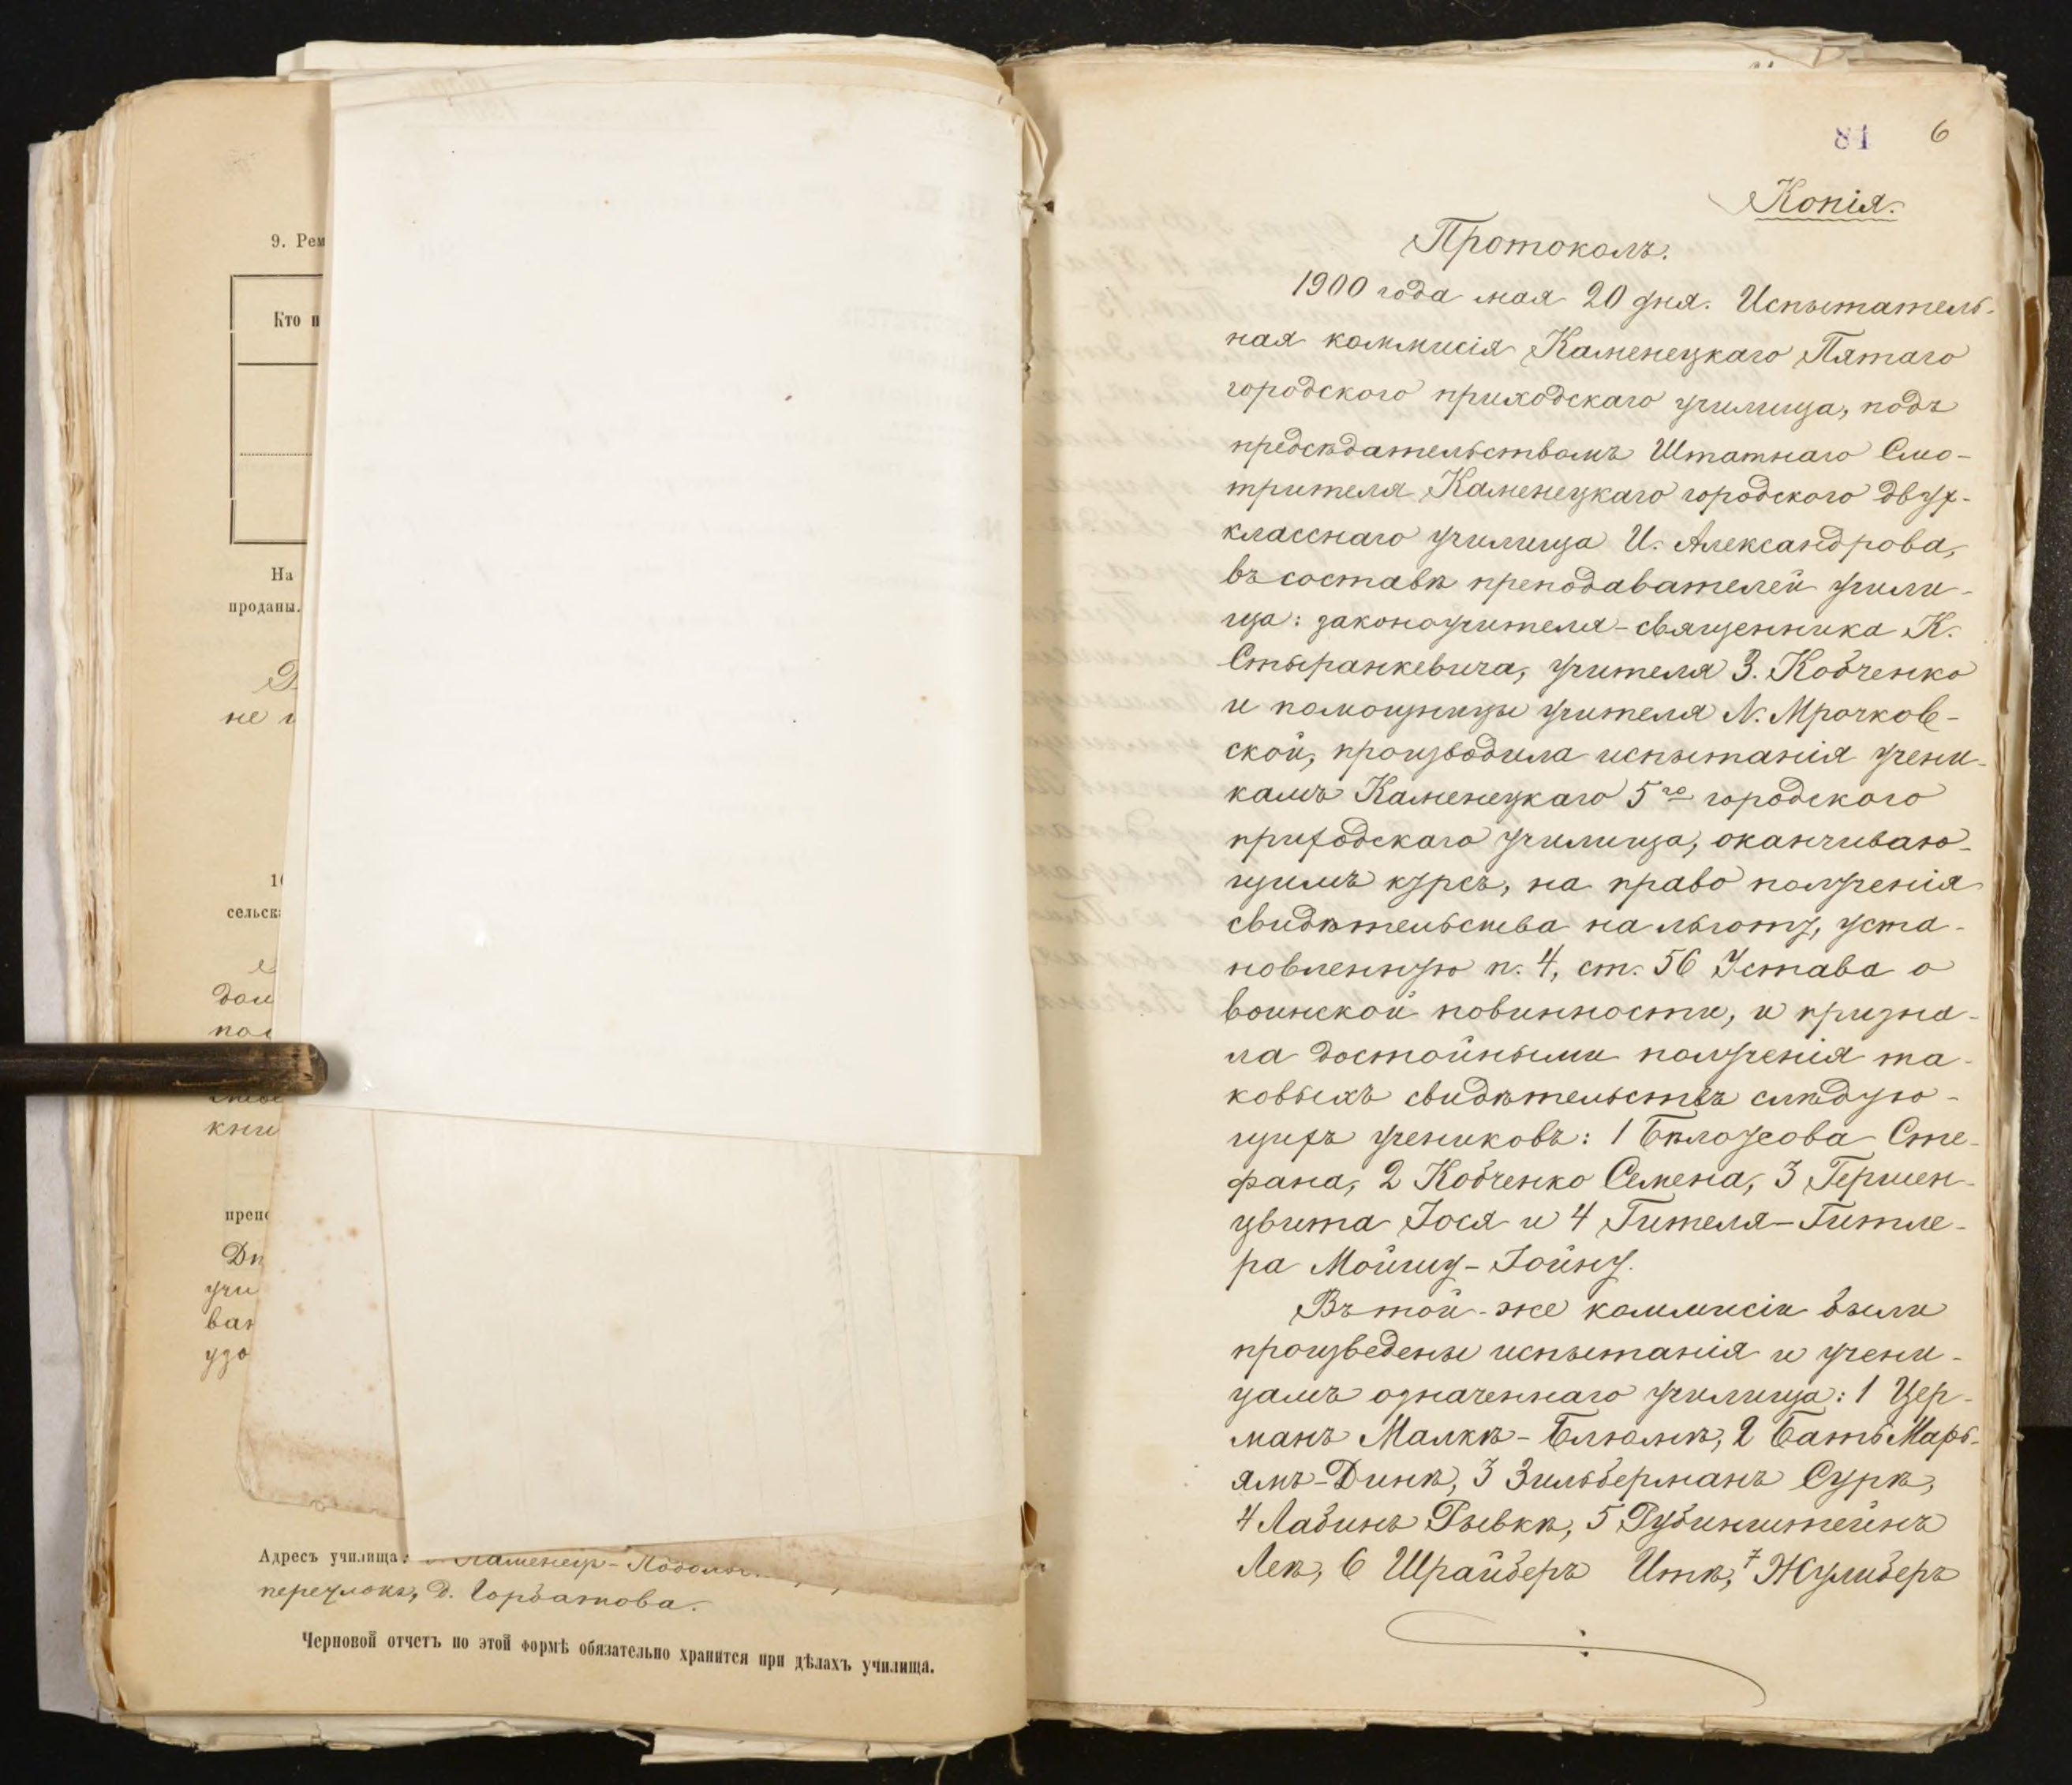 9. Рем
Кто п
На
проданы.
не
1
сельск
дом
кни
препо
учи
ван
удо
Адресъ училища: Каменецъ-Подол
переулокъ, д. Горбатова.
Черновой отчетъ по этой формѣ обязательно хранится при дѣлахъ училища.
81 6
Копія.
Протоколъ.
1900 года мая 20 дня. Испытатель-
ная коммисія Каменецкаго Пятаго
городского приходскаго училища, подъ
предсѣдательствомъ Штатнаго Смо-
трителя Каменецкаго городского двух-
класснаго училища И. Александрова,
въ составѣ преподавателей учили-
ща: законоучителя-священника К.
Стыранкевича, учителя З. Кобченко
и помощницы учителя N. Мрочков-
ской, производила испытанія учени-
камъ Каменецкаго 5го городского
приходскаго училища, оканчиваю-
щимъ курсъ, на право полученія
свидѣтельства на льготу, уста-
новленную п. 4, ст. 56 Устава о
воинской повинности, и призна-
ла достойными полученія та-
ковыхъ свидѣтельствъ слѣдую-
щихъ учениковъ: 1 Бѣлоусова Сте-
фана, 2 Кобченко Семена, 3 Гершен-
цвита Іося и 4 Гителя-Гитле-
ра Мойшу-Іойну.
Въ той-же коммисіи были
произведены испытанія и учени-
цамъ означеннаго училища: 1 Цер-
манъ Малкѣ-Блюмѣ, 2 Бать Марь-
ямъ-Динѣ, 3 Зильберманъ Сурѣ,
4 Лабинъ Рывкѣ, 5 Рубинштейнъ
Леѣ, 6 Шрайберъ Итѣ, 7 Жулиберъ